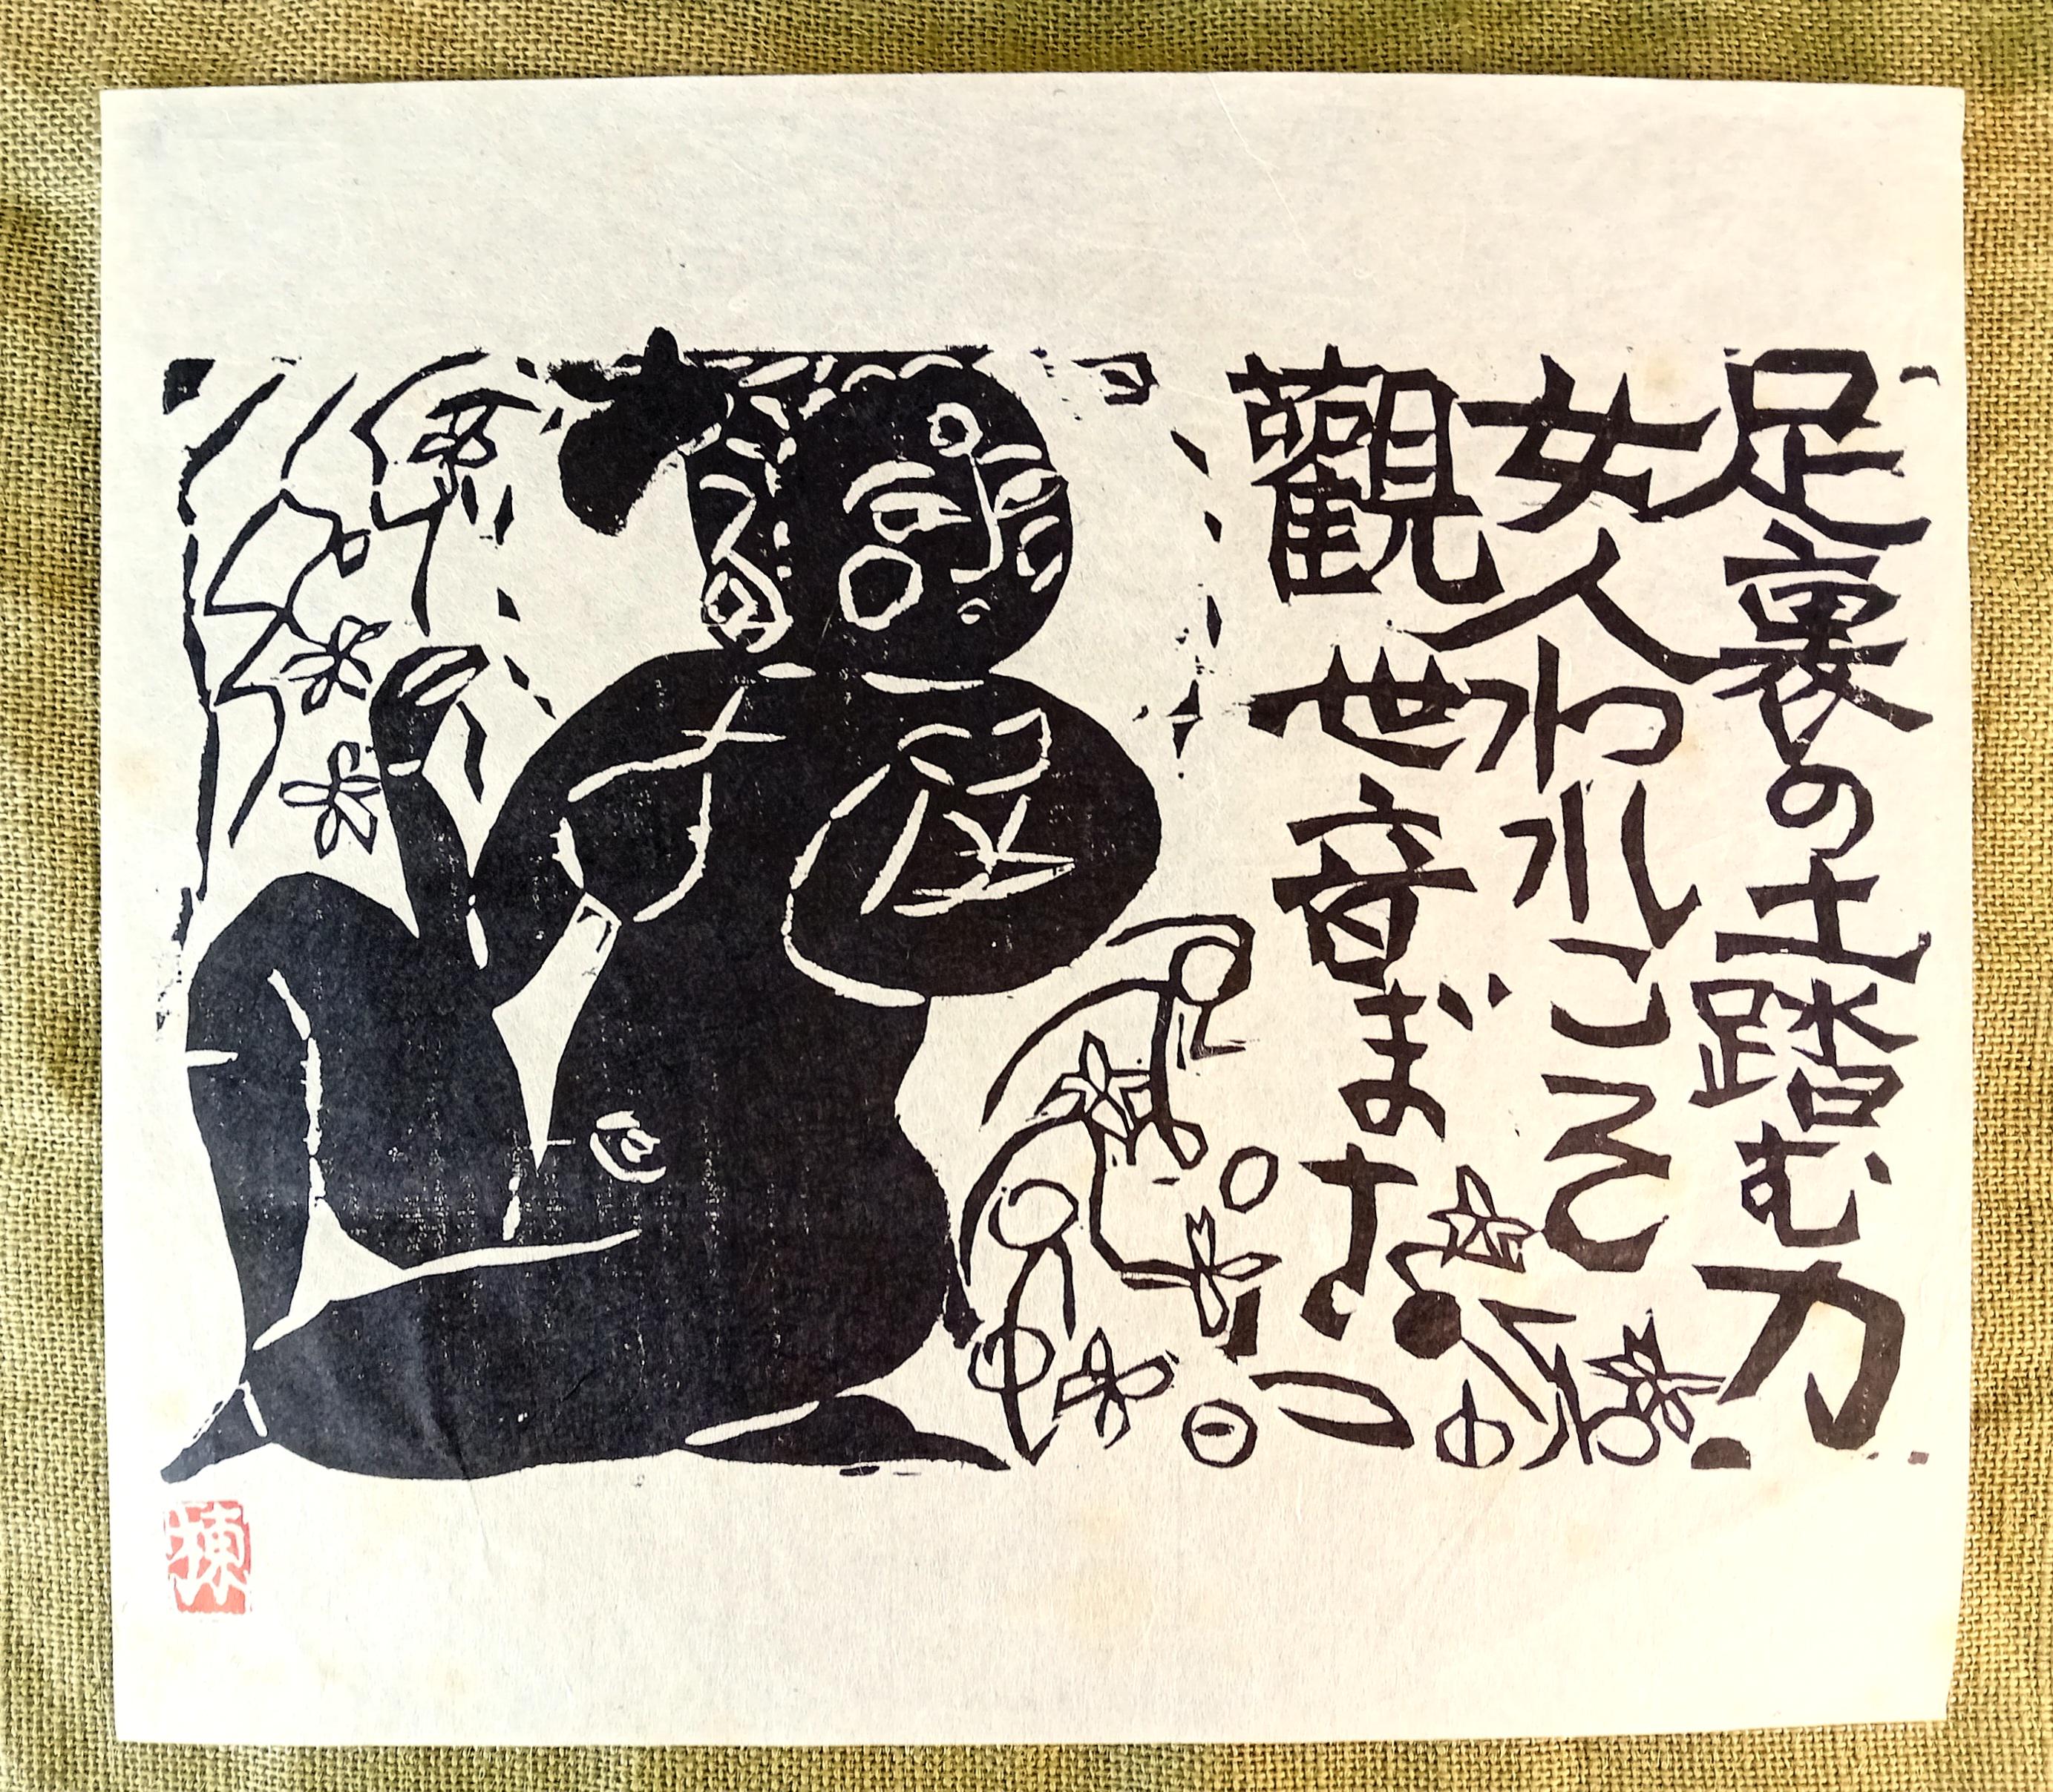 足裏の土踏む力
女人われこそ
觀世音ぼさつ
棟